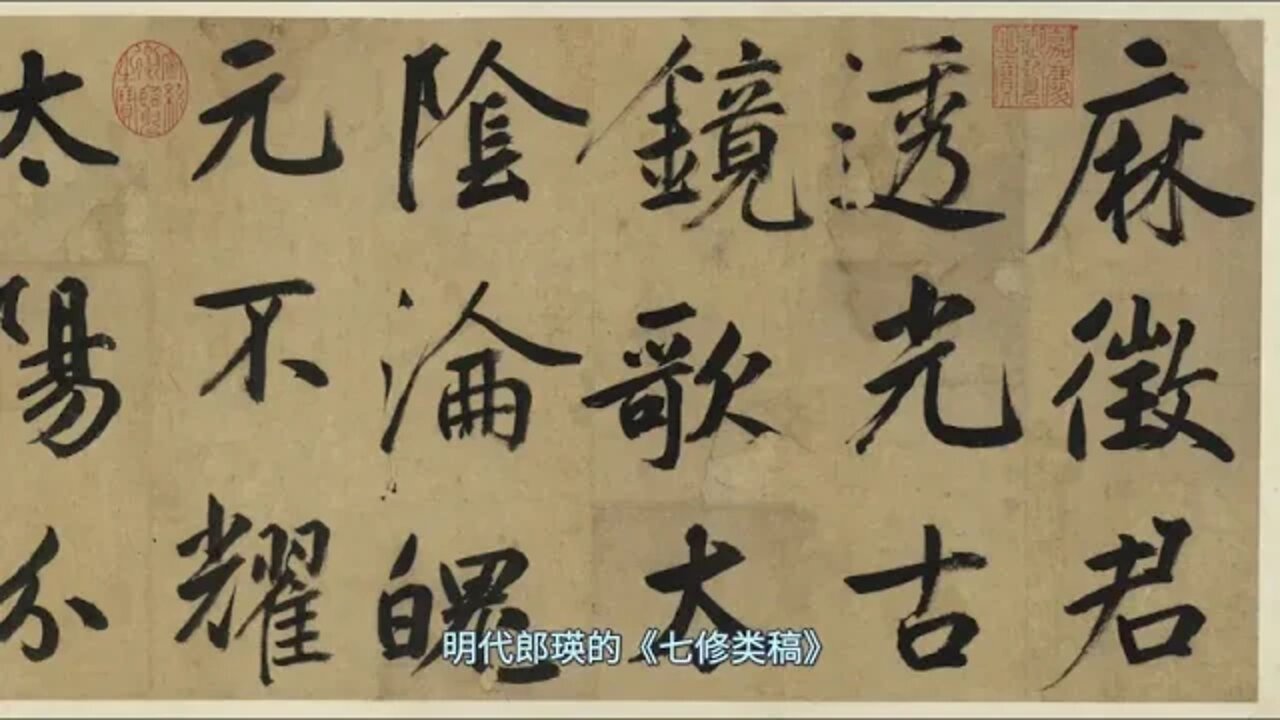 麻徵君
透光古
鏡歌太
陰淪魄
元不耀
太陽分
明代郎瑛的《七修类稿》